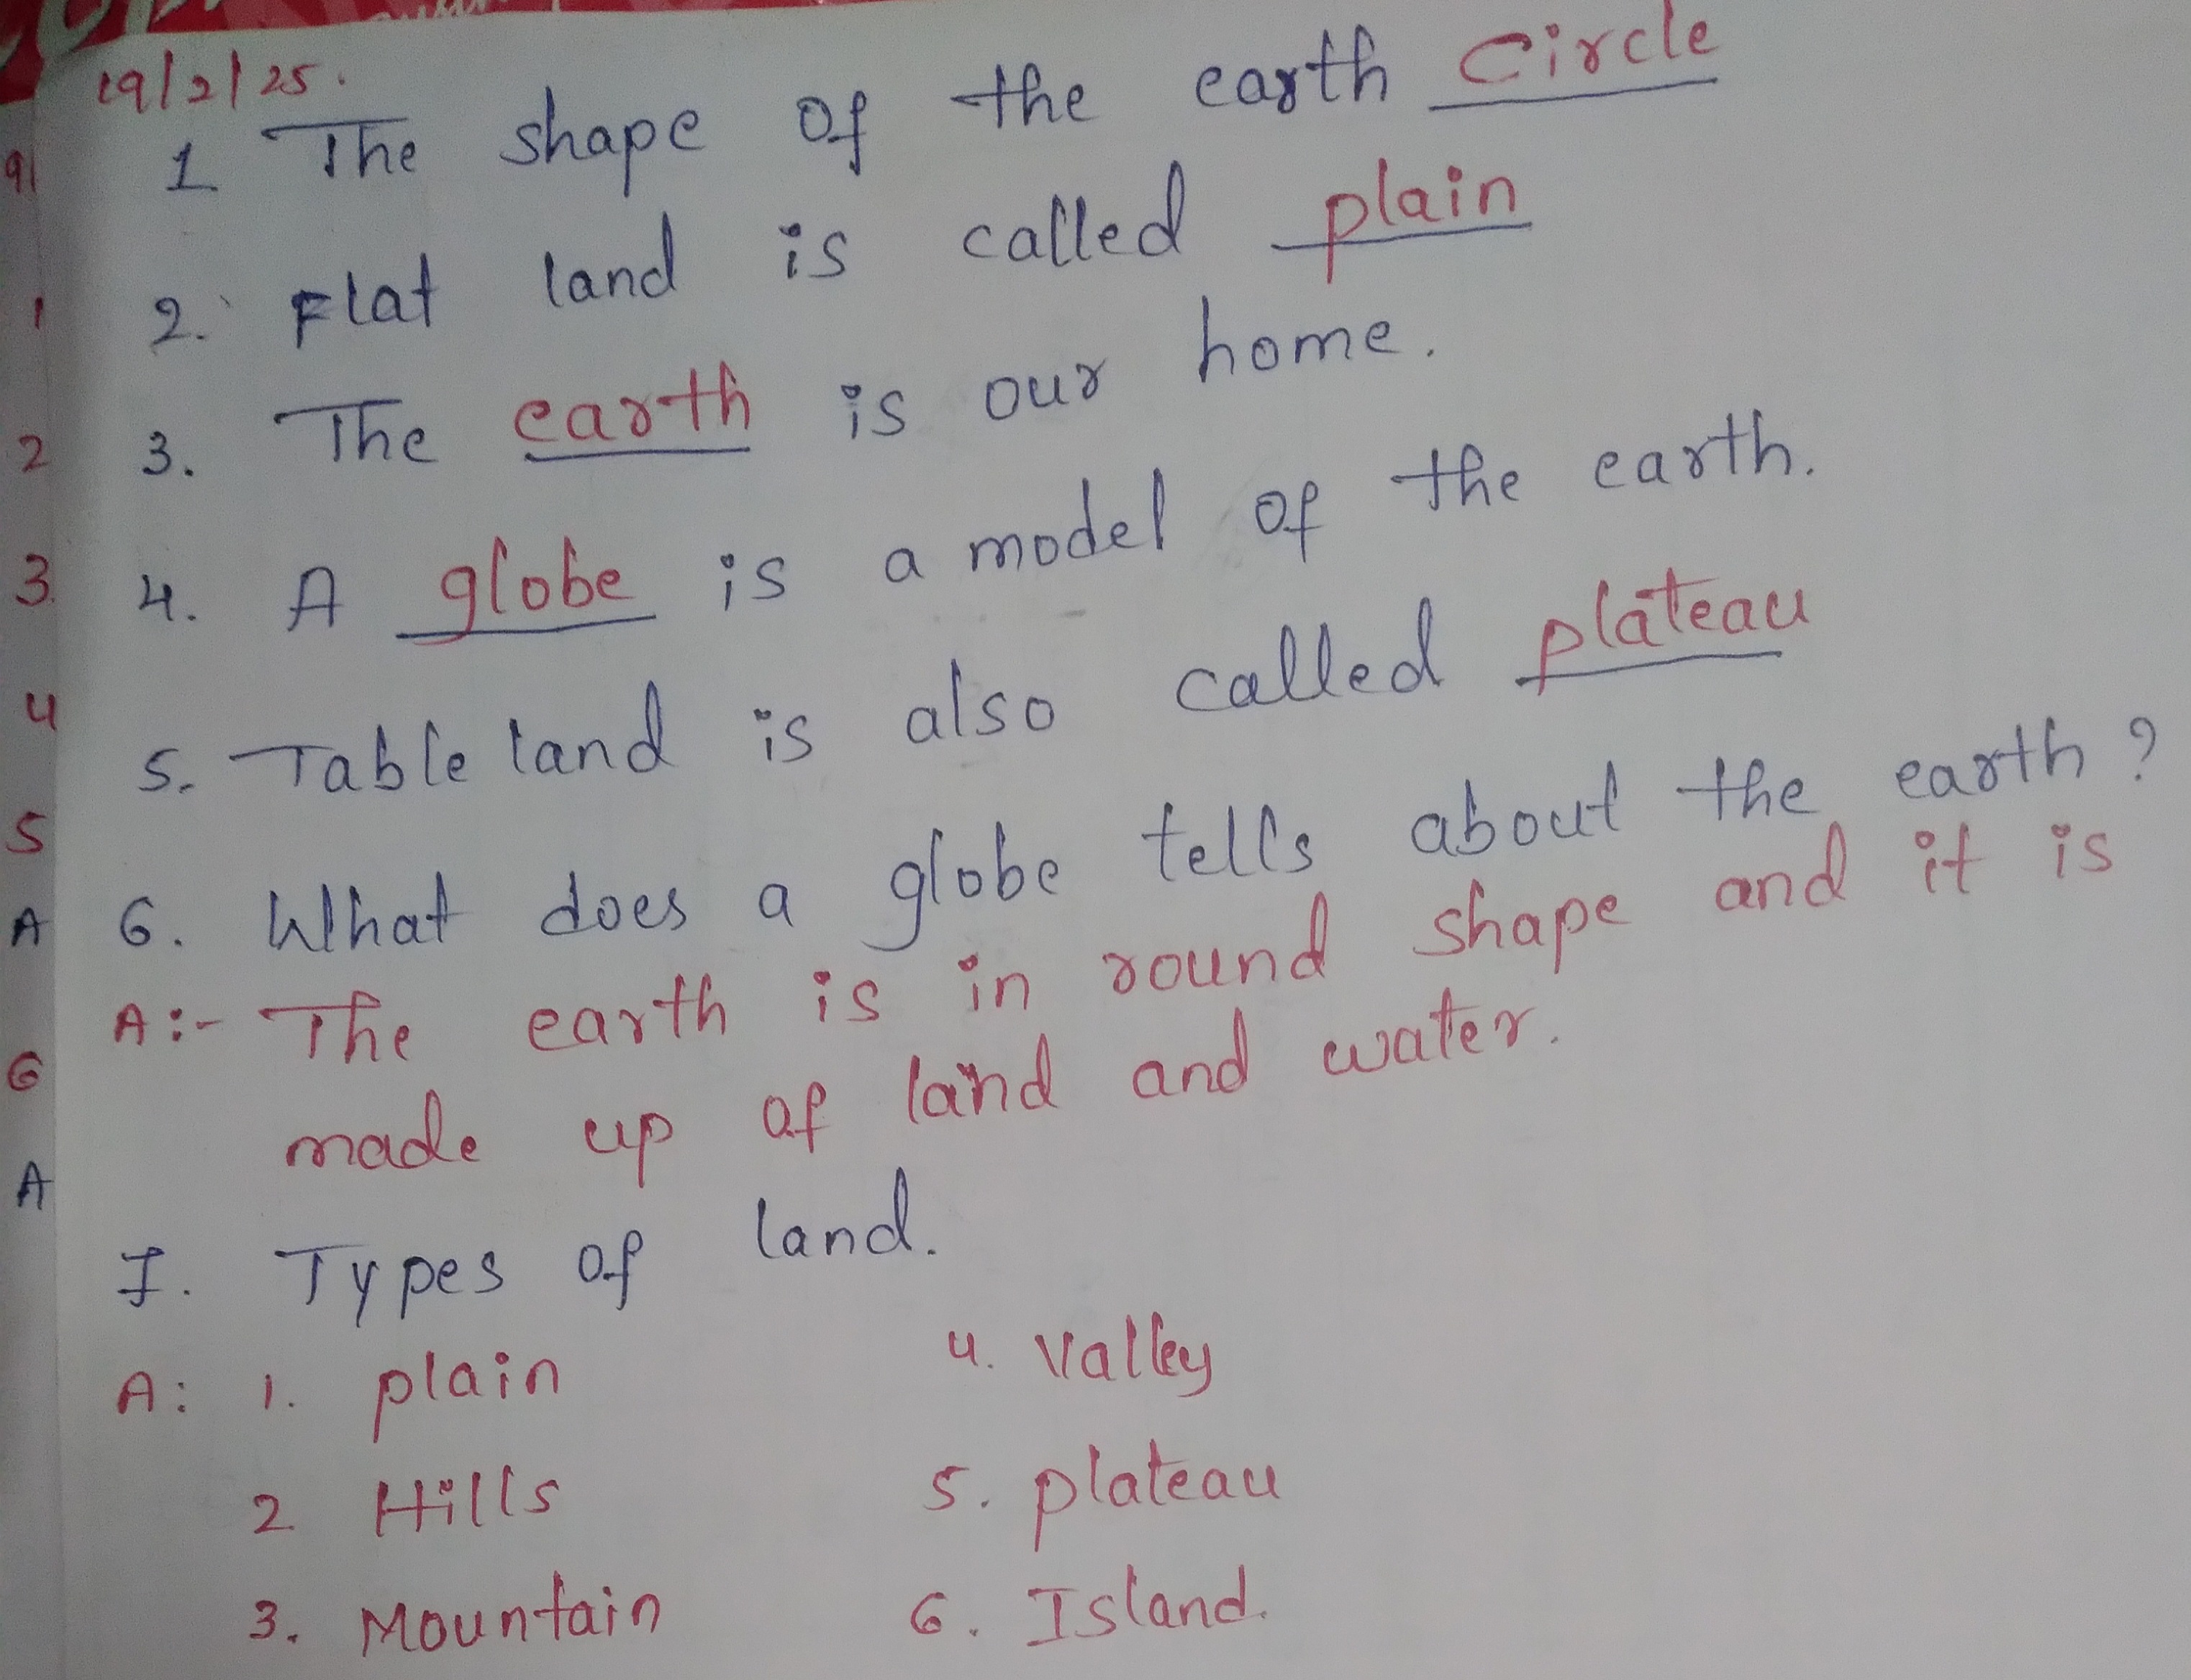 19/2/25.
1 The shape of the earth Circle
2. Flat land is called plain
3. The earth is our home.
4. A globe is a model of the earth.
5. Table land is also called plateau
6. What does a globe tells about the earth?
A:- The earth is in round shape and it is
made up of land and water.
7. Types of land.
A: 1. plain 4. Valley
2 Hills 5. plateau
3. Mountain 6. Island.
91
1
2
3.
4
5
A
6
A